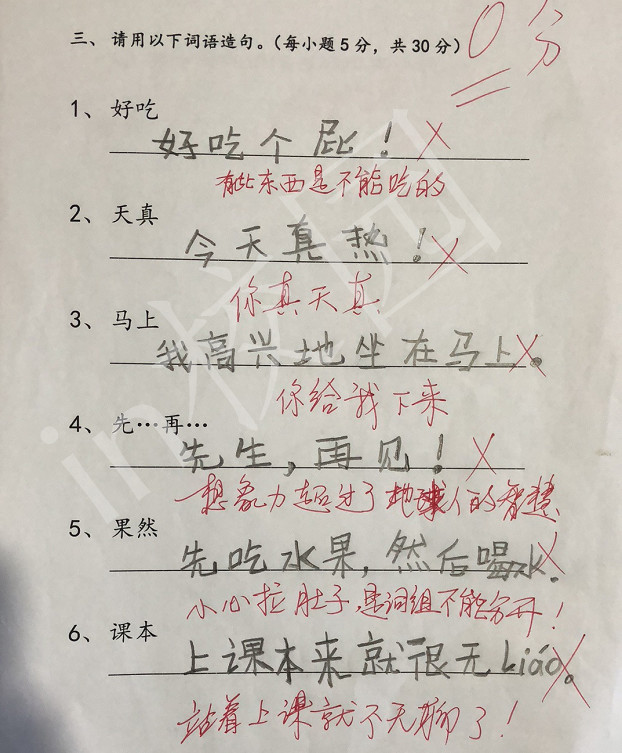 三、请用以下词语造句。（每小题5分，共30分）
0分
1、好吃
好吃个屁！
有些东西是不能吃的
2、天真
今天真热！
你真天真
3、马上
我高兴地坐在马上。
你给我下来
4、先…再…
先生，再见！
想象力超过了地球人的智慧
5、果然
先吃水果，然后喝水.
小心拉肚子，是词组不能分开！
6、课本
上课本来就很无liáo。
站着上课就不无聊了！
in校园